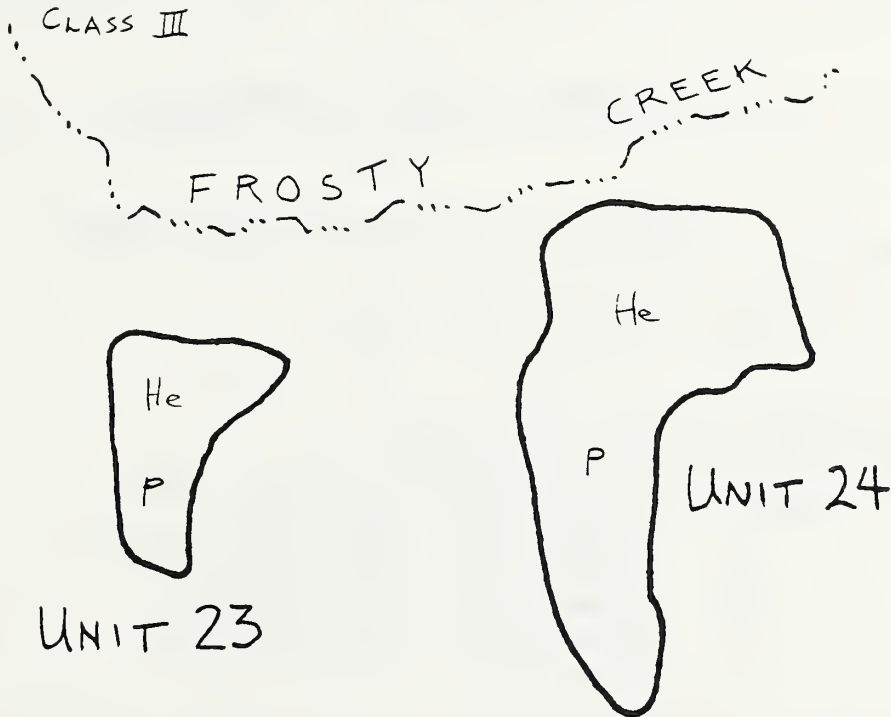 CLASS III
FROSTY CREEK
He
P
UNIT 23
He
P
UNIT 24